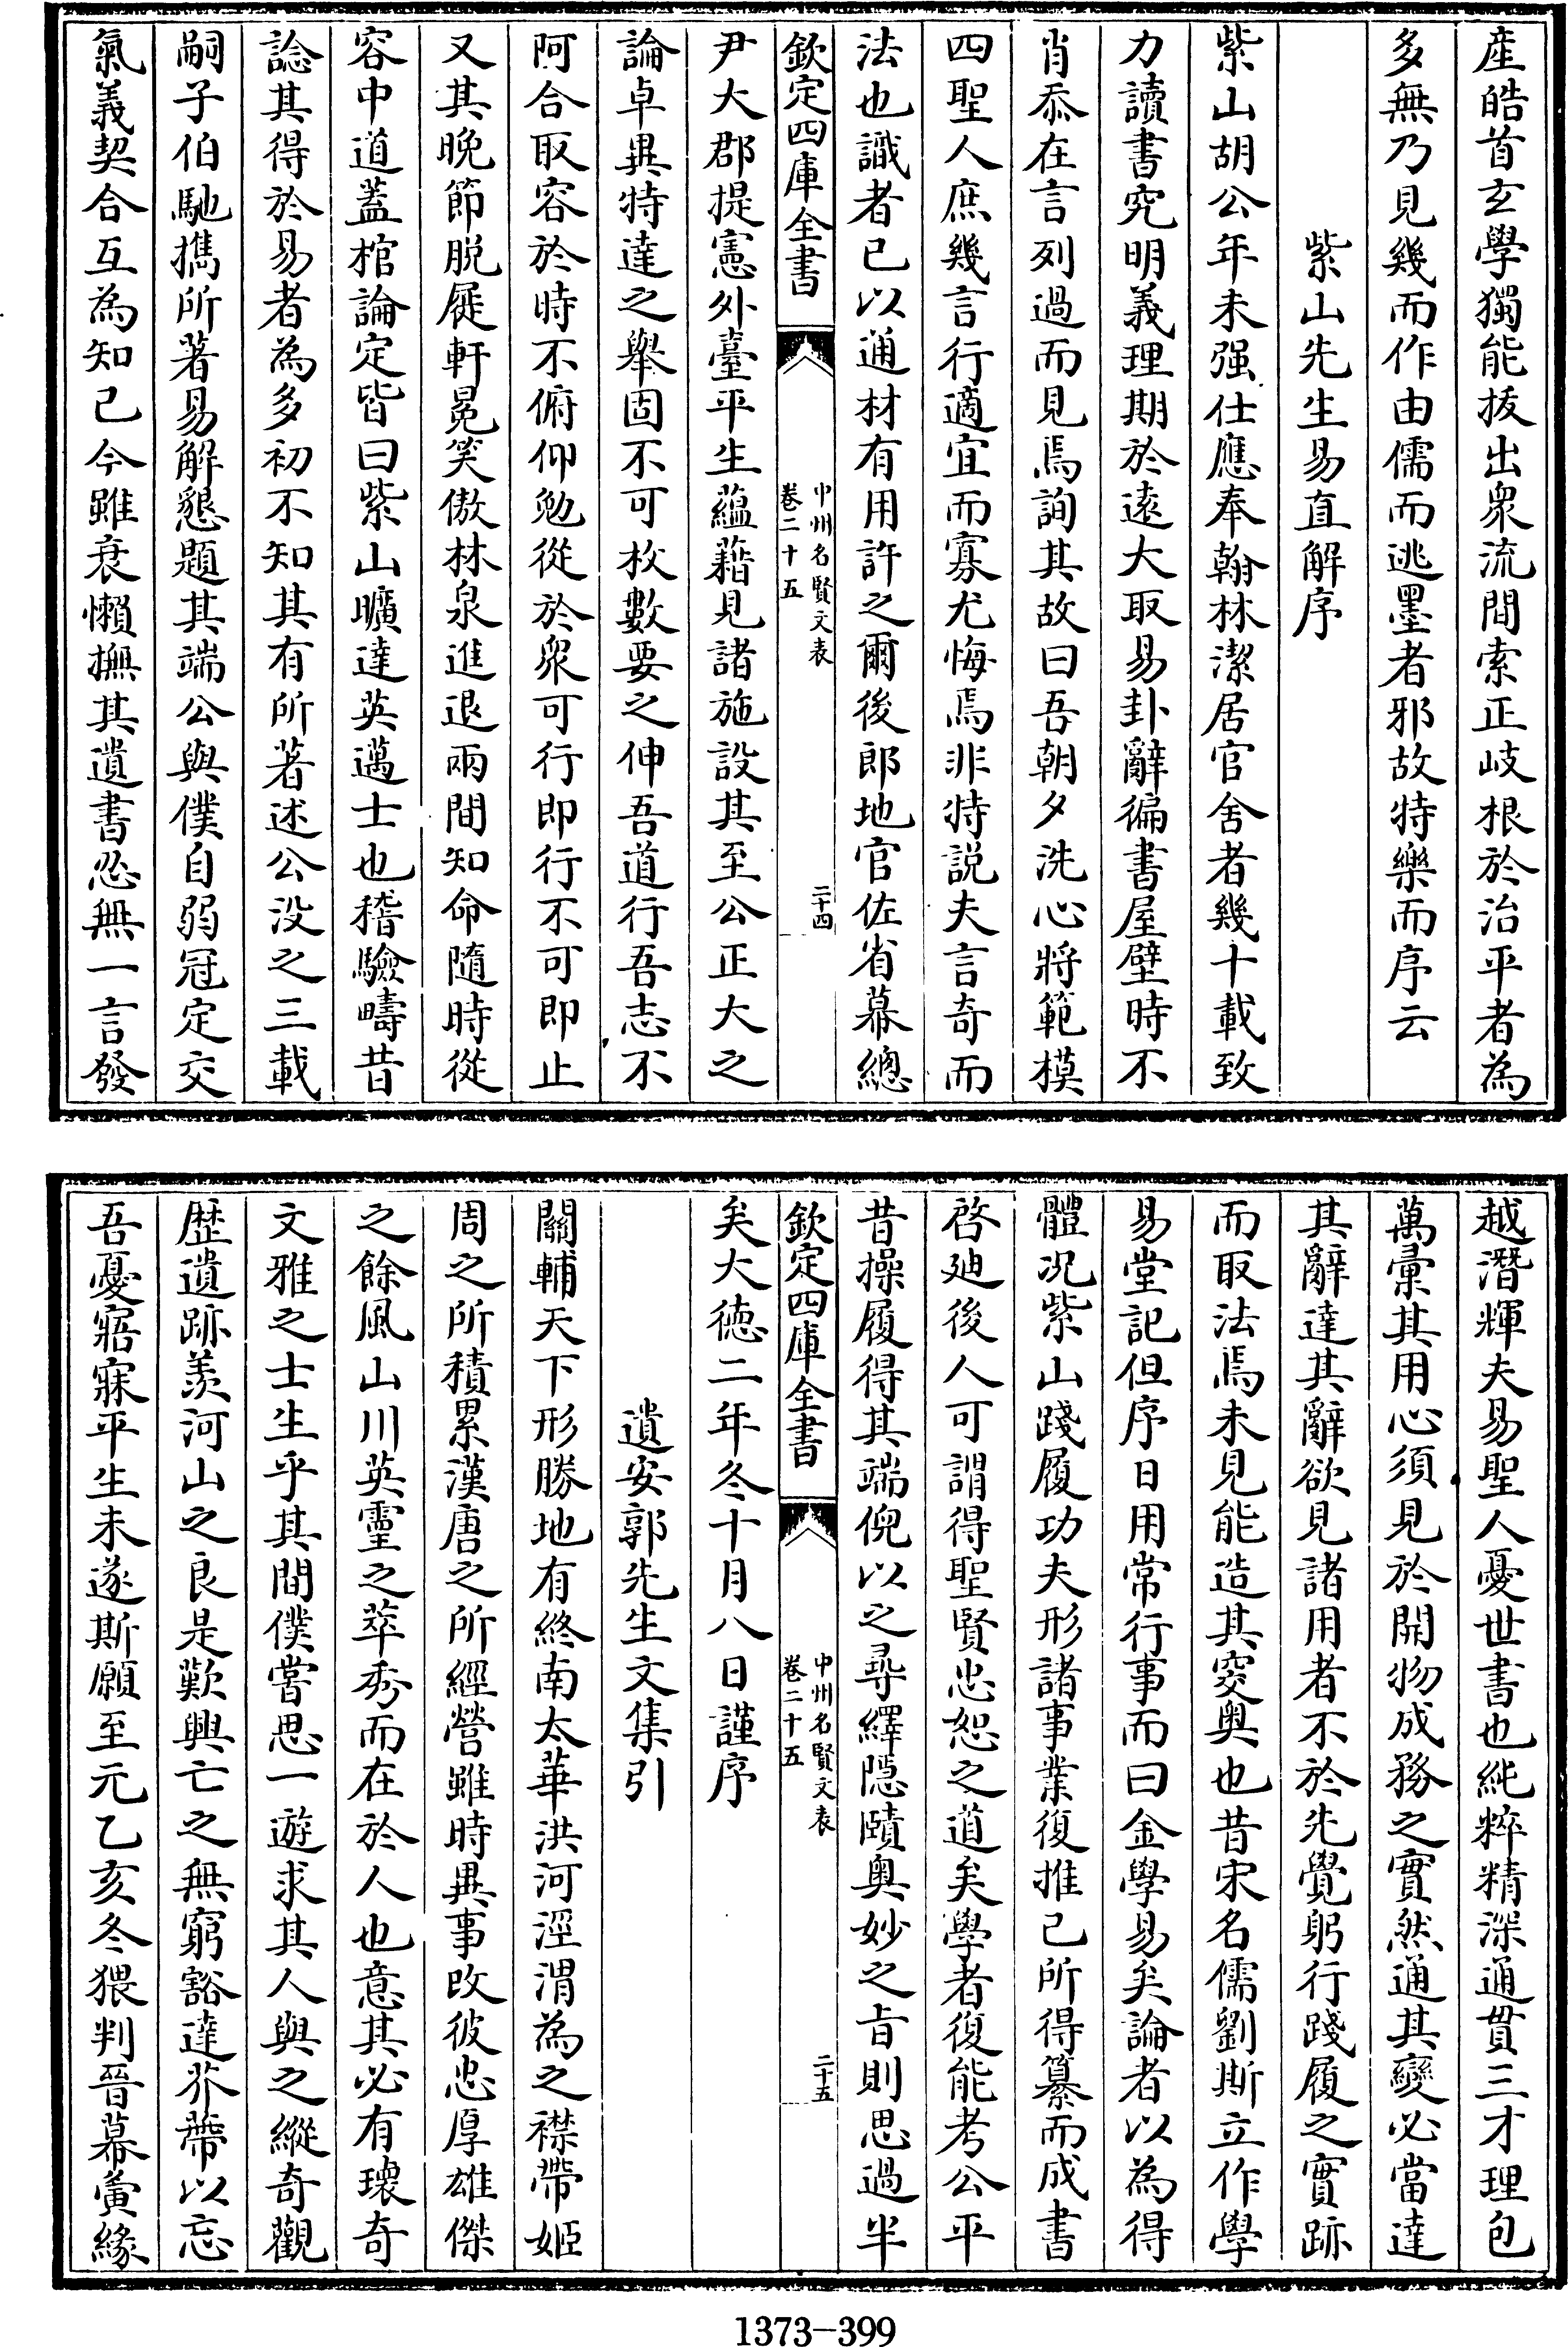 産皓首玄學獨能拔出衆流間索正岐根於治平者為
多無乃見幾而作由儒而逃墨者邪故特樂而序云
紫山先生易直解序
紫山胡公年未强仕應奉翰林潔居官舍者幾十載致
力讀書究明義理期於遠大取易卦辭徧書屋壁時不
肖忝在言列過而見焉詢其故曰吾朝夕洗心將範模
四聖人庶幾言行適宜而寡尤悔焉非特説夫言奇而
法也識者已以通材有用許之爾後郎地官佐省幕總
欽定四庫全書
中州名賢文表
卷二十五
二十四
尹大郡提憲外臺平生蘊藉見諸施設其至公正大之
論卓異特達之舉固不可枚數要之伸吾道行吾志不
阿合取容於時不俯仰勉從於衆可行即行不可即止
又其晚節脱屣軒冕笑傲林泉進退兩間知命隨時從
容中道蓋棺論定皆曰紫山曠達英邁士也稽驗疇昔
諗其得於易者為多初不知其有所著述公没之三載
嗣子伯馳攜所著易解懇題其端公與僕自弱冠定交
氣義契合互為知已今雖衰懶撫其遺書忍無一言發
越潛輝夫易聖人憂世書也純粹精深通貫三才理包
萬彙其用心須見於開物成務之實然通其變必當達
其辭達其辭欲見諸用者不於先覺躬行踐履之實跡
而取法焉未見能造其突奥也昔宋名儒劉斯立作學
易堂記但序日用常行事而曰金學易矣論者以為得
體况紫山踐履功夫形諸事業復推已所得纂而成書
啓廸後人可謂得聖賢忠恕之道矣學者復能考公平
昔操履得其端倪以之尋繹隱賾奥妙之旨則思過半
欽定四庫全書
中州名賢文表
卷二十五
二十五
矣大德二年冬十月八日謹序
遺安郭先生文集引
關輔天下形勝地有終南太華洪河涇渭為之襟帶姬
周之所積累漢唐之所經營雖時異事改彼忠厚雄傑
之餘風山川英靈之萃秀而在於人也意其必有瓌奇
文雅之士生乎其間僕嘗思一遊求其人與之縱奇觀
歴遺跡羨河山之良是歎興亡之無窮豁達芥蔕以忘
吾憂寤寐平生未遂斯願至元乙亥冬猥判晉幕夤緣
1373-399